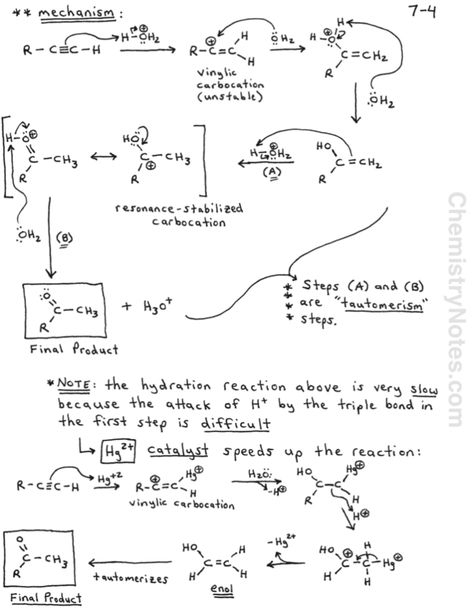 ** mechanism: 7-4
R-C≡C-H H-ÖH₂ ⊕ R-C=C H H ÖH₂ H-O H C=CH₂ R
vinylic
carbocation
(unstable)
ÖH₂
H-O⊕ C-CH₃ R ↔ HÖ C-CH₃ ⊕ R H-ÖH₂ ⊕ (A) HO C=CH₂ R
resonance-stabilized
carbocation
ÖH₂ (B)
O C-CH₃ R + H₃O⁺
Final Product
* Steps (A) and (B)
* are "tautomerism"
* steps.
* NOTE: the hydration reaction above is very slow
because the attack of H⁺ by the triple bond in
the first step is difficult
↳ Hg²⁺ catalyst speeds up the reaction:
R-C≡C-H Hg⁺² R-C=C Hg⊕ H H₂O: -H⊕ HO R C=C Hg⊕ H
vinylic carbocation
H⊕
O C-CH₃ R tautomerizes HO R C=C H H -Hg²⁺ HO R C⊕-C H H Hg⊕
Final Product enol
ChemistryNotes.com